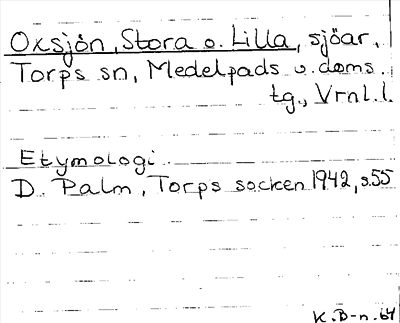 Oxsjön, Stora o. Lilla, sjöar,
Torps sn, Medelpads v. doms.
tg., Vrnl. l.
Etymologi
D. Palm, Torps socken 1942, s.55
K.B-n. 64